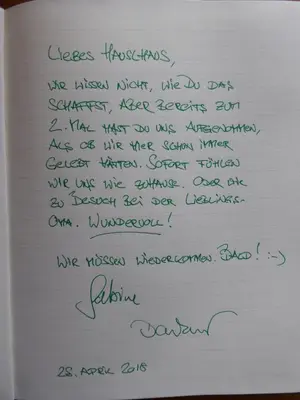 LIEBES HAUSCHAUS,
WIR WISSEN NICHT, WIE DU DAS
SCHAFFST, ABER BEREITS ZUM
2. MAL HAST DU UNS AUFGENOMMEN,
ALS OB WIR HIER SCHON IMMER
GELEBT HÄTTEN. SOFORT FÜHLEN
WIR UNS WIE ZUHAUSE. ODER WIE
ZU BESUCH BEI DER LIEBLINGS-
OMA. WUNDERVOLL!
WIR MÜSSEN WIEDERKOMMEN. BALD! :-)
Sabrine
28. APRIL 2018